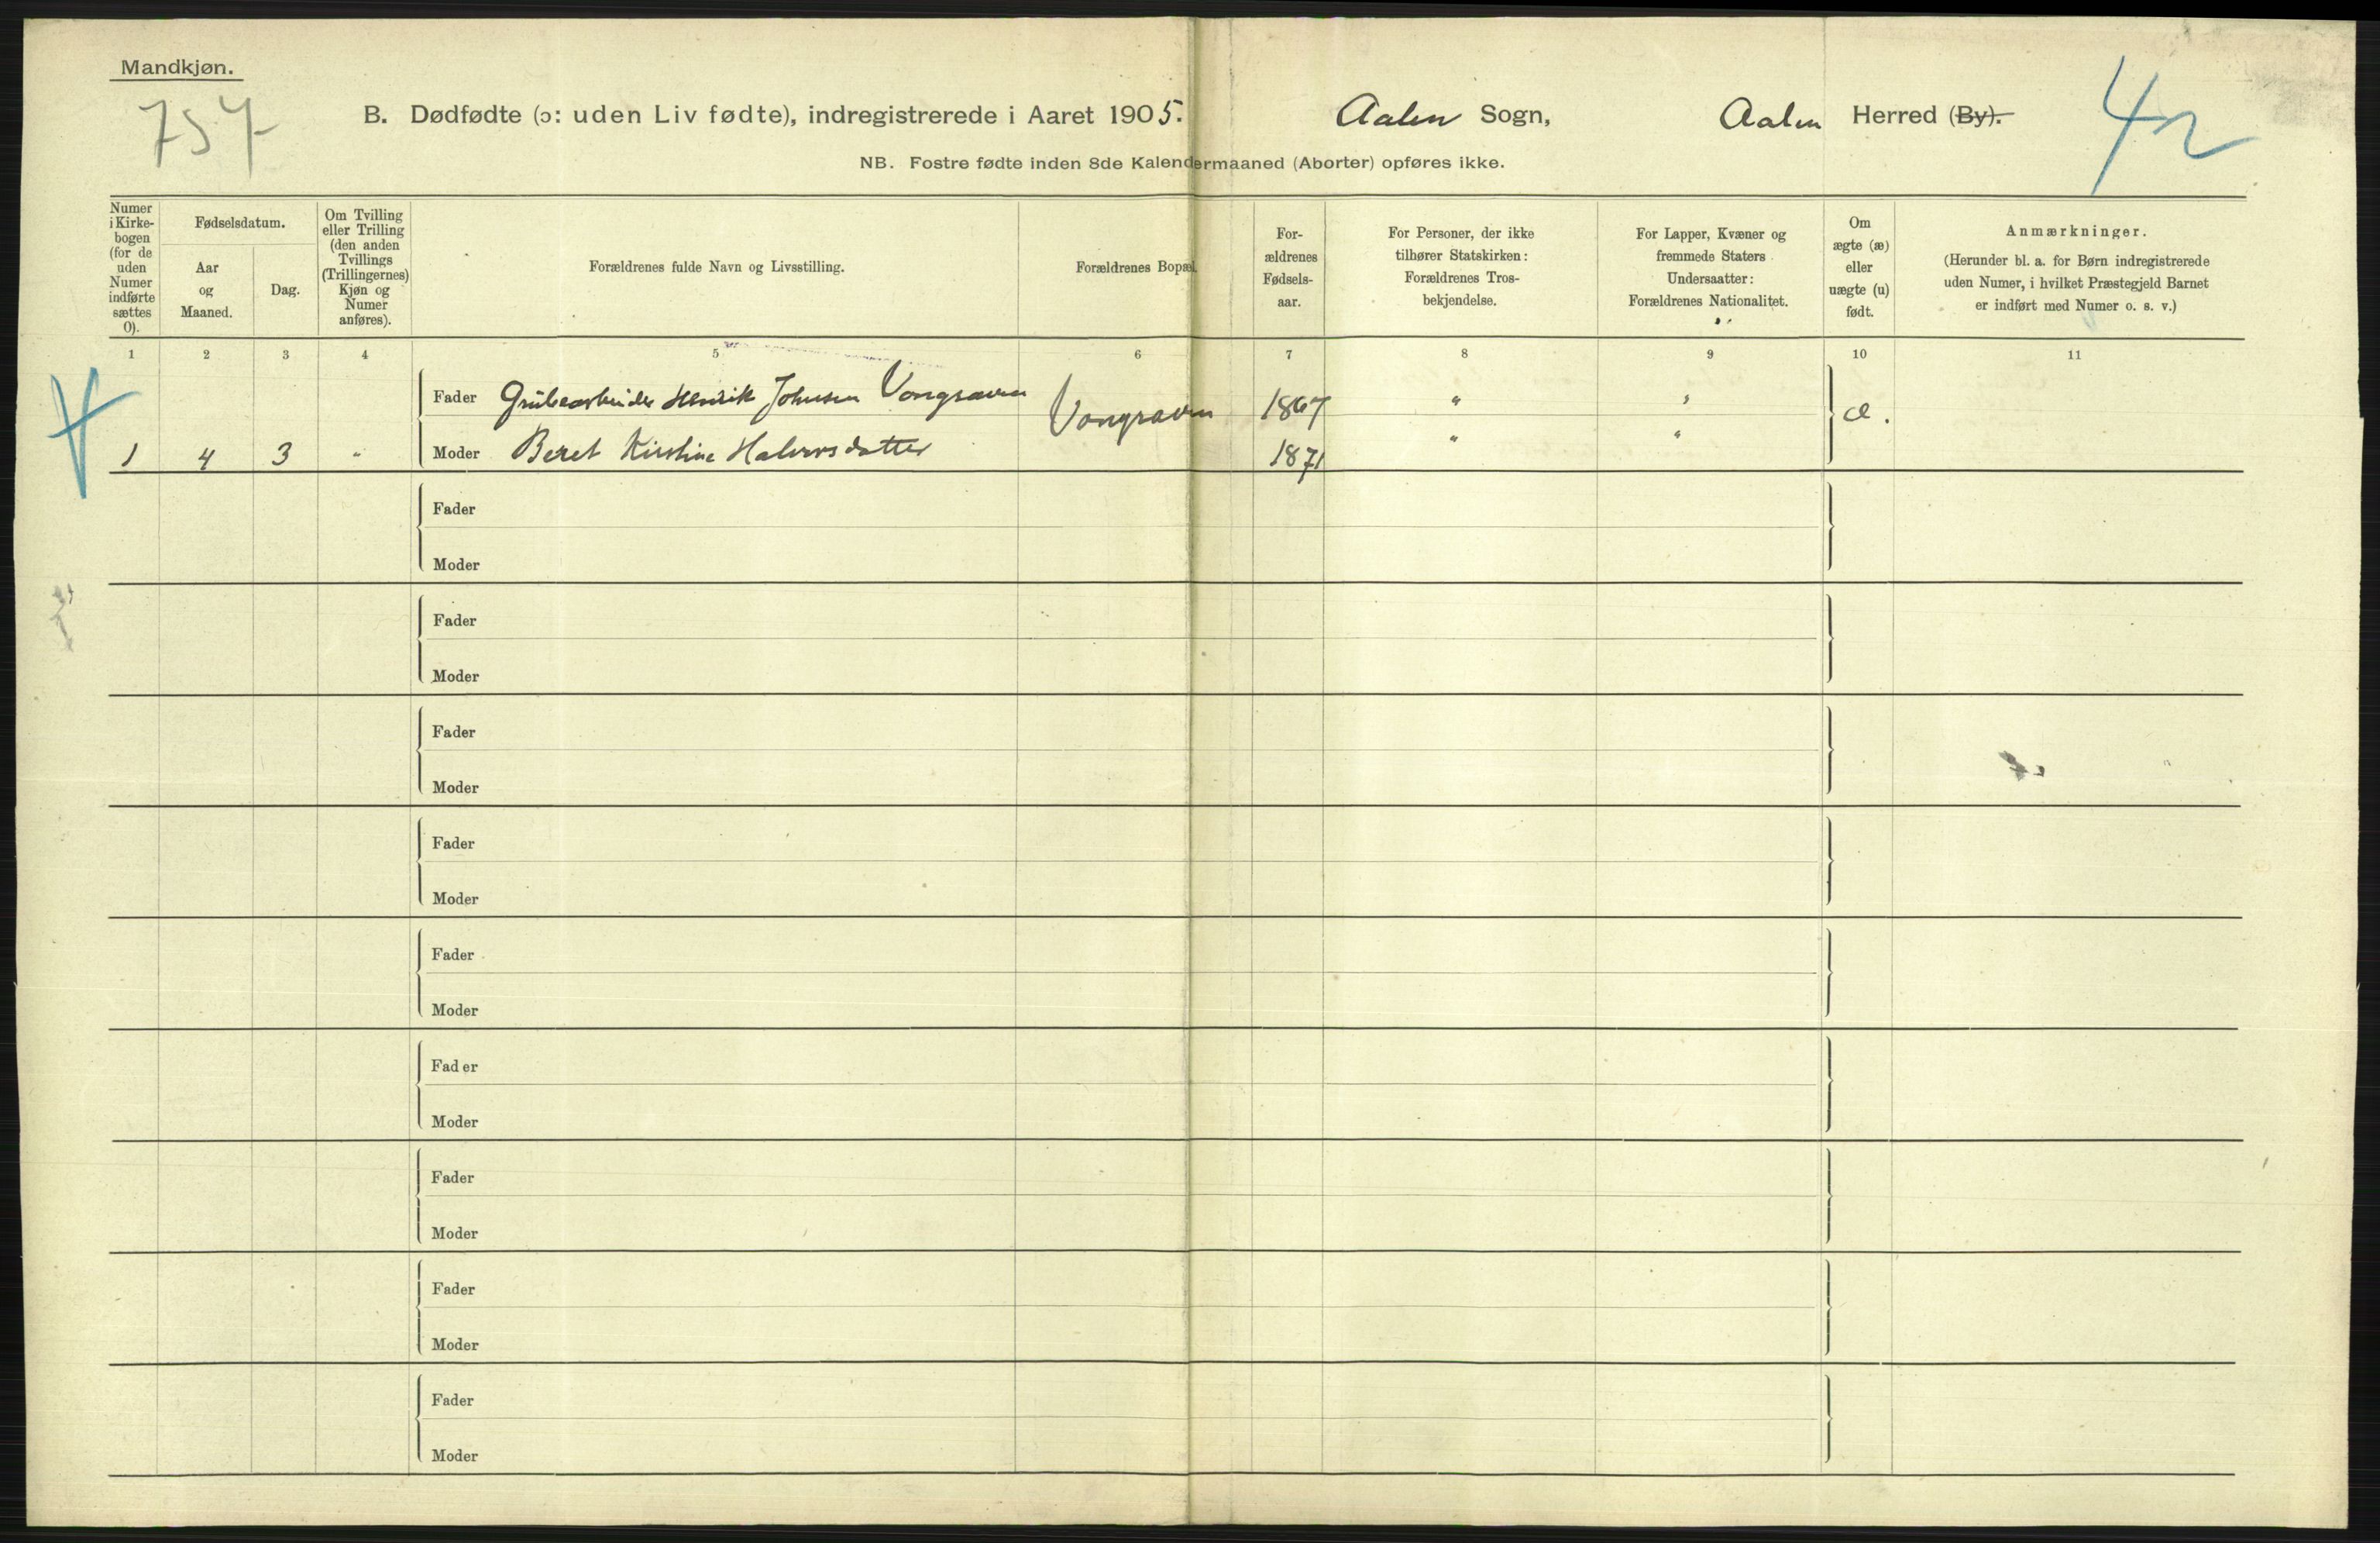 Mandkjøn.
757
B. Dødfødte (ɔ: uden Liv fødte), indregistrerede i Aaret 1905. Aalen Sogn, Aalen Herred (By).
42
NB. Fostre fødte inden 8de Kalendermaaned (Aborter) opføres ikke.
Numer i Kirke-bogen (for de uden Numer indførte sættes 0).
Fødselsdatum.
Aar og Maaned.
Dag.
Om Tvilling eller Trilling (den anden Tvillings (Trillingernes) Kjøn og Numer anføres).
Forældrenes fulde Navn og Livsstilling.
Forældrenes Bopæl.
For-ældrenes Fødsels-aar.
For Personer, der ikke tilhører Statskirken: Forældrenes Tros-bekjendelse.
For Lapper, Kvæner og fremmede Staters Undersaatter: Forældrenes Nationalitet.
Om ægte (æ) eller uægte (u) født.
Anmærkninger.
(Herunder bl. a. for Børn indregistrerede uden Numer, i hvilket Præstegjeld Barnet er indført med Numer o. s. v.)
1 2 3 4 5 6 7 8 9 10 11
Fader Grubearbeider Henrik Johnsen Vongraven Vongraven 1867 " " æ.
1 4 3 " Moder Beret Kirstine Halvorsdatter 1871 " "
Fader
Moder
Fader
Moder
Fader
Moder
Fader
Moder
Fader
Moder
Fader
Moder
Fader
Moder
Fader
Moder
Fader
Moder